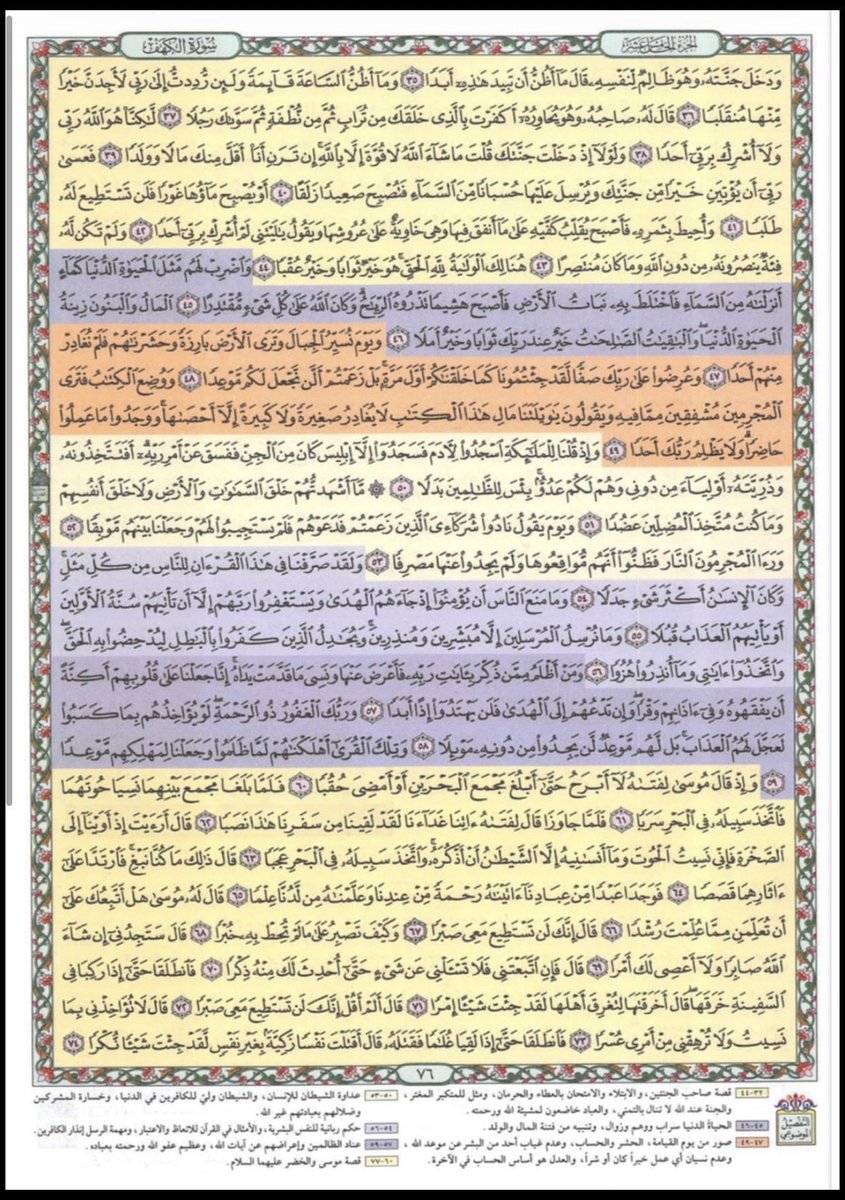 الجزء الخامس عشر
سورة الكهف
وَدَخَلَ جَنَّتَهُۥ وَهُوَ ظَالِمٌ لِّنَفْسِهِۦ قَالَ مَآ أَظُنُّ أَن تَبِيدَ هَٰذِهِۦٓ أَبَدًا ٣٥ وَمَآ أَظُنُّ ٱلسَّاعَةَ قَآئِمَةً وَلَئِن رُّدِدتُّ إِلَىٰ رَبِّى لَأَجِدَنَّ خَيْرًا
مِّنْهَا مُنقَلَبًا ٣٦ قَالَ لَهُۥ صَاحِبُهُۥ وَهُوَ يُحَاوِرُهُۥٓ أَكَفَرْتَ بِٱلَّذِى خَلَقَكَ مِن تُرَابٍ ثُمَّ مِن نُّطْفَةٍ ثُمَّ سَوَّىٰكَ رَجُلًا ٣٧ لَّٰكِنَّا۠ هُوَ ٱللَّهُ رَبِّى
وَلَآ أُشْرِكُ بِرَبِّىٓ أَحَدًا ٣٨ وَلَوْلَآ إِذْ دَخَلْتَ جَنَّتَكَ قُلْتَ مَا شَآءَ ٱللَّهُ لَا قُوَّةَ إِلَّا بِٱللَّهِ إِن تَرَنِ أَنَا۠ أَقَلَّ مِنكَ مَالًا وَوَلَدًا ٣٩ فَعَسَىٰ
رَبِّىٓ أَن يُؤْتِيَنِ خَيْرًا مِّن جَنَّتِكَ وَيُرْسِلَ عَلَيْهَا حُسْبَانًا مِّنَ ٱلسَّمَآءِ فَتُصْبِحَ صَعِيدًا زَلَقًا ٤٠ أَوْ يُصْبِحَ مَآؤُهَا غَوْرًا فَلَن تَسْتَطِيعَ لَهُۥ
طَلَبًا ٤١ وَأُحِيطَ بِثَمَرِهِۦ فَأَصْبَحَ يُقَلِّبُ كَفَّيْهِ عَلَىٰ مَآ أَنفَقَ فِيهَا وَهِىَ خَاوِيَةٌ عَلَىٰ عُرُوشِهَا وَيَقُولُ يَٰلَيْتَنِى لَمْ أُشْرِكْ بِرَبِّىٓ أَحَدًا ٤٢ وَلَمْ تَكُن لَّهُۥ
فِئَةٌ يَنصُرُونَهُۥ مِن دُونِ ٱللَّهِ وَمَا كَانَ مُنتَصِرًا ٤٣ هُنَالِكَ ٱلْوَلَٰيَةُ لِلَّهِ ٱلْحَقِّ هُوَ خَيْرٌ ثَوَابًا وَخَيْرٌ عُقْبًا ٤٤ وَٱضْرِبْ لَهُم مَّثَلَ ٱلْحَيَوٰةِ ٱلدُّنْيَا كَمَآءٍ
أَنزَلْنَٰهُ مِنَ ٱلسَّمَآءِ فَٱخْتَلَطَ بِهِۦ نَبَاتُ ٱلْأَرْضِ فَأَصْبَحَ هَشِيمًا تَذْرُوهُ ٱلرِّيَٰحُ وَكَانَ ٱللَّهُ عَلَىٰ كُلِّ شَىْءٍ مُّقْتَدِرًا ٤٥ ٱلْمَالُ وَٱلْبَنُونَ زِينَةُ
ٱلْحَيَوٰةِ ٱلدُّنْيَا وَٱلْبَٰقِيَٰتُ ٱلصَّٰلِحَٰتُ خَيْرٌ عِندَ رَبِّكَ ثَوَابًا وَخَيْرٌ أَمَلًا ٤٦ وَيَوْمَ نُسَيِّرُ ٱلْجِبَالَ وَتَرَى ٱلْأَرْضَ بَارِزَةً وَحَشَرْنَٰهُمْ فَلَمْ نُغَادِرْ
مِنْهُمْ أَحَدًا ٤٧ وَعُرِضُوا۟ عَلَىٰ رَبِّكَ صَفًّا لَّقَدْ جِئْتُمُونَا كَمَا خَلَقْنَٰكُمْ أَوَّلَ مَرَّةٍ بَلْ زَعَمْتُمْ أَلَّن نَّجْعَلَ لَكُم مَّوْعِدًا ٤٨ وَوُضِعَ ٱلْكِتَٰبُ فَتَرَى
ٱلْمُجْرِمِينَ مُشْفِقِينَ مِمَّا فِيهِ وَيَقُولُونَ يَٰوَيْلَتَنَا مَالِ هَٰذَا ٱلْكِتَٰبِ لَا يُغَادِرُ صَغِيرَةً وَلَا كَبِيرَةً إِلَّآ أَحْصَىٰهَا وَوَجَدُوا۟ مَا عَمِلُوا۟
حَاضِرًا وَلَا يَظْلِمُ رَبُّكَ أَحَدًا ٤٩ وَإِذْ قُلْنَا لِلْمَلَٰٓئِكَةِ ٱسْجُدُوا۟ لِءَادَمَ فَسَجَدُوٓا۟ إِلَّآ إِبْلِيسَ كَانَ مِنَ ٱلْجِنِّ فَفَسَقَ عَنْ أَمْرِ رَبِّهِۦٓ أَفَتَتَّخِذُونَهُۥ
وَذُرِّيَّتَهُۥٓ أَوْلِيَآءَ مِن دُونِى وَهُمْ لَكُمْ عَدُوٌّۢ بِئْسَ لِلظَّٰلِمِينَ بَدَلًا ٥٠ ۞ مَّآ أَشْهَدتُّهُمْ خَلْقَ ٱلسَّمَٰوَٰتِ وَٱلْأَرْضِ وَلَا خَلْقَ أَنفُسِهِمْ
وَمَا كُنتُ مُتَّخِذَ ٱلْمُضِلِّينَ عَضُدًا ٥١ وَيَوْمَ يَقُولُ نَادُوا۟ شُرَكَآءِىَ ٱلَّذِينَ زَعَمْتُمْ فَدَعَوْهُمْ فَلَمْ يَسْتَجِيبُوا۟ لَهُمْ وَجَعَلْنَا بَيْنَهُم مَّوْبِقًا ٥٢
وَرَءَا ٱلْمُجْرِمُونَ ٱلنَّارَ فَظَنُّوٓا۟ أَنَّهُم مُّوَاقِعُوهَا وَلَمْ يَجِدُوا۟ عَنْهَا مَصْرِفًا ٥٣ وَلَقَدْ صَرَّفْنَا فِى هَٰذَا ٱلْقُرْءَانِ لِلنَّاسِ مِن كُلِّ مَثَلٍ
وَكَانَ ٱلْإِنسَٰنُ أَكْثَرَ شَىْءٍ جَدَلًا ٥٤ وَمَا مَنَعَ ٱلنَّاسَ أَن يُؤْمِنُوٓا۟ إِذْ جَآءَهُمُ ٱلْهُدَىٰ وَيَسْتَغْفِرُوا۟ رَبَّهُمْ إِلَّآ أَن تَأْتِيَهُمْ سُنَّةُ ٱلْأَوَّلِينَ
أَوْ يَأْتِيَهُمُ ٱلْعَذَابُ قُبُلًا ٥٥ وَمَا نُرْسِلُ ٱلْمُرْسَلِينَ إِلَّا مُبَشِّرِينَ وَمُنذِرِينَ وَيُجَٰدِلُ ٱلَّذِينَ كَفَرُوا۟ بِٱلْبَٰطِلِ لِيُدْحِضُوا۟ بِهِ ٱلْحَقَّ
وَٱتَّخَذُوٓا۟ ءَايَٰتِى وَمَآ أُنذِرُوا۟ هُزُوًا ٥٦ وَمَنْ أَظْلَمُ مِمَّن ذُكِّرَ بِـَٔايَٰتِ رَبِّهِۦ فَأَعْرَضَ عَنْهَا وَنَسِىَ مَا قَدَّمَتْ يَدَاهُ إِنَّا جَعَلْنَا عَلَىٰ قُلُوبِهِمْ أَكِنَّةً
أَن يَفْقَهُوهُ وَفِىٓ ءَاذَانِهِمْ وَقْرًا وَإِن تَدْعُهُمْ إِلَى ٱلْهُدَىٰ فَلَن يَهْتَدُوٓا۟ إِذًا أَبَدًا ٥٧ وَرَبُّكَ ٱلْغَفُورُ ذُو ٱلرَّحْمَةِ لَوْ يُؤَاخِذُهُم بِمَا كَسَبُوا۟
لَعَجَّلَ لَهُمُ ٱلْعَذَابَ بَل لَّهُم مَّوْعِدٌ لَّن يَجِدُوا۟ مِن دُونِهِۦ مَوْئِلًا ٥٨ وَتِلْكَ ٱلْقُرَىٰٓ أَهْلَكْنَٰهُمْ لَمَّا ظَلَمُوا۟ وَجَعَلْنَا لِمَهْلِكِهِم مَّوْعِدًا
٥٩ وَإِذْ قَالَ مُوسَىٰ لِفَتَىٰهُ لَآ أَبْرَحُ حَتَّىٰٓ أَبْلُغَ مَجْمَعَ ٱلْبَحْرَيْنِ أَوْ أَمْضِىَ حُقُبًا ٦٠ فَلَمَّا بَلَغَا مَجْمَعَ بَيْنِهِمَا نَسِيَا حُوتَهُمَا
فَٱتَّخَذَ سَبِيلَهُۥ فِى ٱلْبَحْرِ سَرَبًا ٦١ فَلَمَّا جَاوَزَا قَالَ لِفَتَىٰهُ ءَاتِنَا غَدَآءَنَا لَقَدْ لَقِينَا مِن سَفَرِنَا هَٰذَا نَصَبًا ٦٢ قَالَ أَرَءَيْتَ إِذْ أَوَيْنَآ إِلَى
ٱلصَّخْرَةِ فَإِنِّى نَسِيتُ ٱلْحُوتَ وَمَآ أَنسَىٰنِيهُ إِلَّا ٱلشَّيْطَٰنُ أَنْ أَذْكُرَهُۥ وَٱتَّخَذَ سَبِيلَهُۥ فِى ٱلْبَحْرِ عَجَبًا ٦٣ قَالَ ذَٰلِكَ مَا كُنَّا نَبْغِ فَٱرْتَدَّا عَلَىٰٓ
ءَاثَارِهِمَا قَصَصًا ٦٤ فَوَجَدَا عَبْدًا مِّنْ عِبَادِنَآ ءَاتَيْنَٰهُ رَحْمَةً مِّنْ عِندِنَا وَعَلَّمْنَٰهُ مِن لَّدُنَّا عِلْمًا ٦٥ قَالَ لَهُۥ مُوسَىٰ هَلْ أَتَّبِعُكَ عَلَىٰٓ
أَن تُعَلِّمَنِ مِمَّا عُلِّمْتَ رُشْدًا ٦٦ قَالَ إِنَّكَ لَن تَسْتَطِيعَ مَعِىَ صَبْرًا ٦٧ وَكَيْفَ تَصْبِرُ عَلَىٰ مَا لَمْ تُحِطْ بِهِۦ خُبْرًا ٦٨ قَالَ سَتَجِدُنِىٓ إِن شَآءَ
ٱللَّهُ صَابِرًا وَلَآ أَعْصِى لَكَ أَمْرًا ٦٩ قَالَ فَإِنِ ٱتَّبَعْتَنِى فَلَا تَسْـَٔلْنِى عَن شَىْءٍ حَتَّىٰٓ أُحْدِثَ لَكَ مِنْهُ ذِكْرًا ٧٠ فَٱنطَلَقَا حَتَّىٰٓ إِذَا رَكِبَا فِى
ٱلسَّفِينَةِ خَرَقَهَا قَالَ أَخَرَقْتَهَا لِتُغْرِقَ أَهْلَهَا لَقَدْ جِئْتَ شَيْـًٔا إِمْرًا ٧١ قَالَ أَلَمْ أَقُلْ إِنَّكَ لَن تَسْتَطِيعَ مَعِىَ صَبْرًا ٧٢ قَالَ لَا تُؤَاخِذْنِى بِمَا
نَسِيتُ وَلَا تُرْهِقْنِى مِنْ أَمْرِى عُسْرًا ٧٣ فَٱنطَلَقَا حَتَّىٰٓ إِذَا لَقِيَا غُلَٰمًا فَقَتَلَهُۥ قَالَ أَقَتَلْتَ نَفْسًا زَكِيَّةًۢ بِغَيْرِ نَفْسٍ لَّقَدْ جِئْتَ شَيْـًٔا نُّكْرًا ٧٤
٧٦
التفصيل الموضوعي
٣٢-٤٤ قصة صاحب الجنتين، والابتلاء والامتحان بالعطاء والحرمان، ومثل للمتكبر المغتر،
والجنة عند الله لا تنال بالتمني، والعباد خاضعون لمشيئة الله ورحمته.
٤٥-٤٦ الحياة الدنيا سراب ووهم وزوال، وتنبيه من فتنة المال والولد.
٤٧-٤٩ صور من يوم القيامة، الحشر والحساب، وعدم غياب أحد من البشر عن موعد الله،
وعدم نسيان أي عمل خيراً كان أو شراً، والعدل هو أساس الحساب في الآخرة.
٥٠-٥٣ عداوة الشيطان للإنسان، والشيطان وليّ للكافرين في الدنيا، وخسارة المشركين
وضلالهم بعبادتهم غير الله.
٥٤-٥٦ حكم ربانية للنفس البشرية، والأمثال في القرآن للاتعاظ والاعتبار، ومهمة الرسل إنذار الكافرين.
٥٧-٥٩ عناد الظالمين وإعراضهم عن آيات الله، وعظيم عفو الله ورحمته بعباده.
٦٠-٧٧ قصة موسى والخضر عليهما السلام.